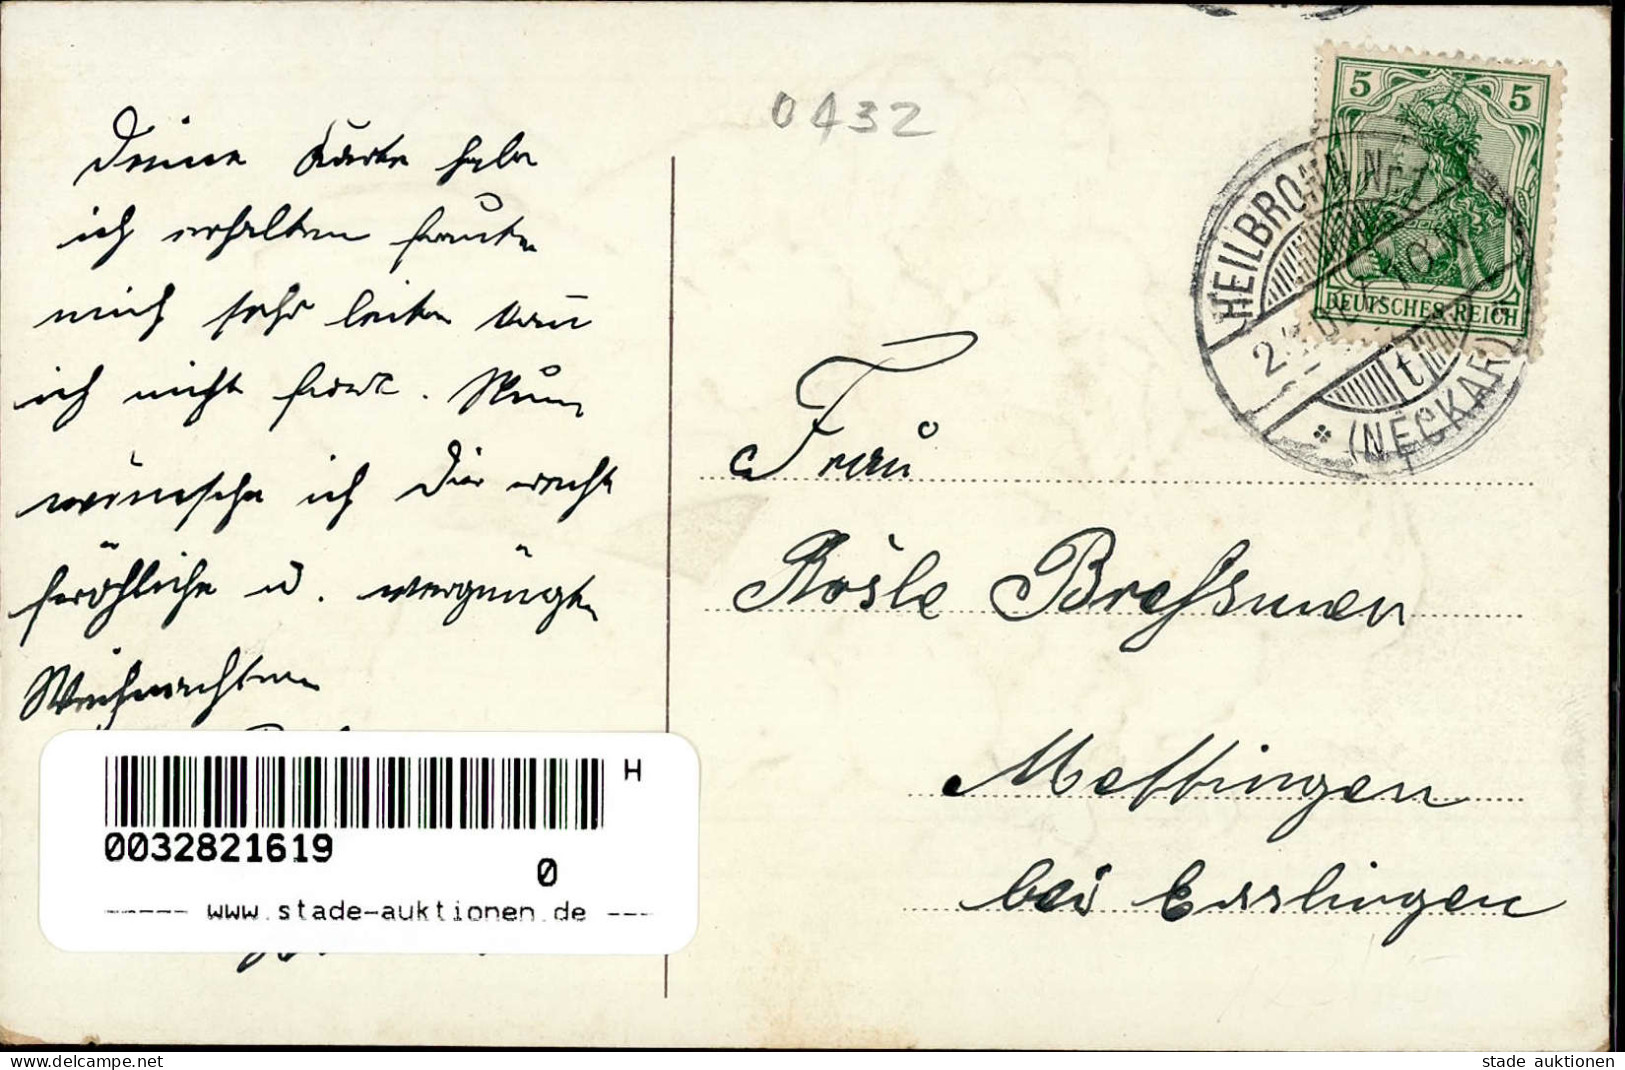 Deine Karte habe
ich erhalten freute
mich sehr leider kann
ich nicht fort. Nun
wünsche ich Dir recht
fröhliche u. vergnügte
Weihnachten
0432
5 5
DEUTSCHES REICH
HEILBRONN Nr. 1
(NECKAR)
Frau
Rösle Bressmer
Mettingen
bei Esslingen
H
0032821619
0
www.stade-auktionen.de
delcampe.net
stade_auktionen